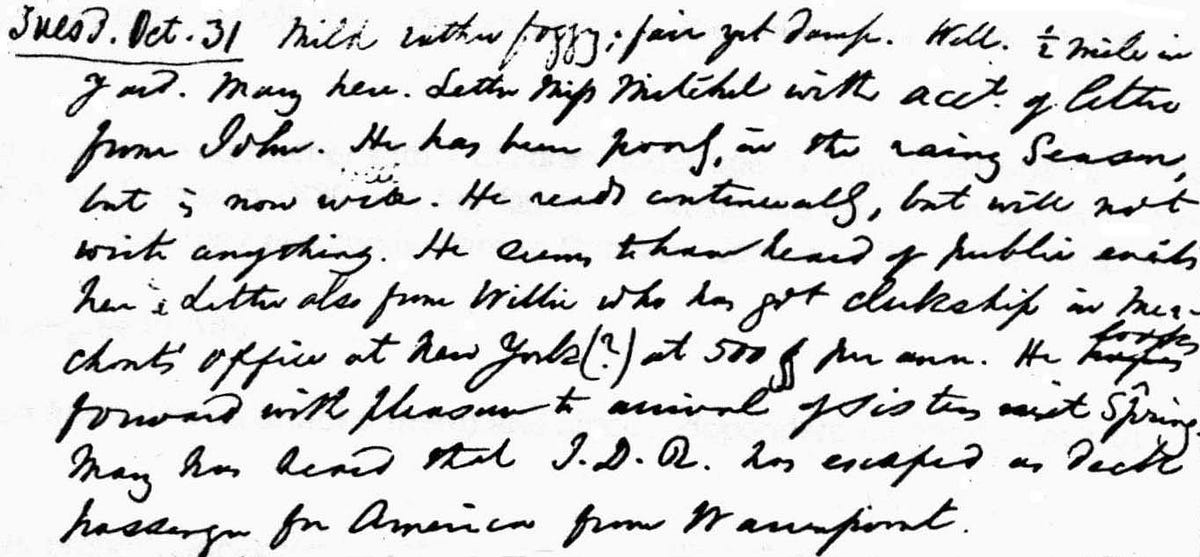 Tuesd. Oct. 31 Mild rather foggy; fair yet damp. Well. ½ mile in
yard. Mary here. Letter Miss Mitchel with acct. of letter
from John. He has been poorly, in the rainy Season,
but is now well. He reads continually, but will not
write anything. He seems to have heard of public events
here. Letter also from Willie who has got clerkship in Mer-
chants' office at New York (?) at 500 $ per ann. He looks
forward with pleasure to arrival of sisters next Spring.
Mary has heard that J. D. R. has escaped as deck
passenger for America from Warrenpoint.